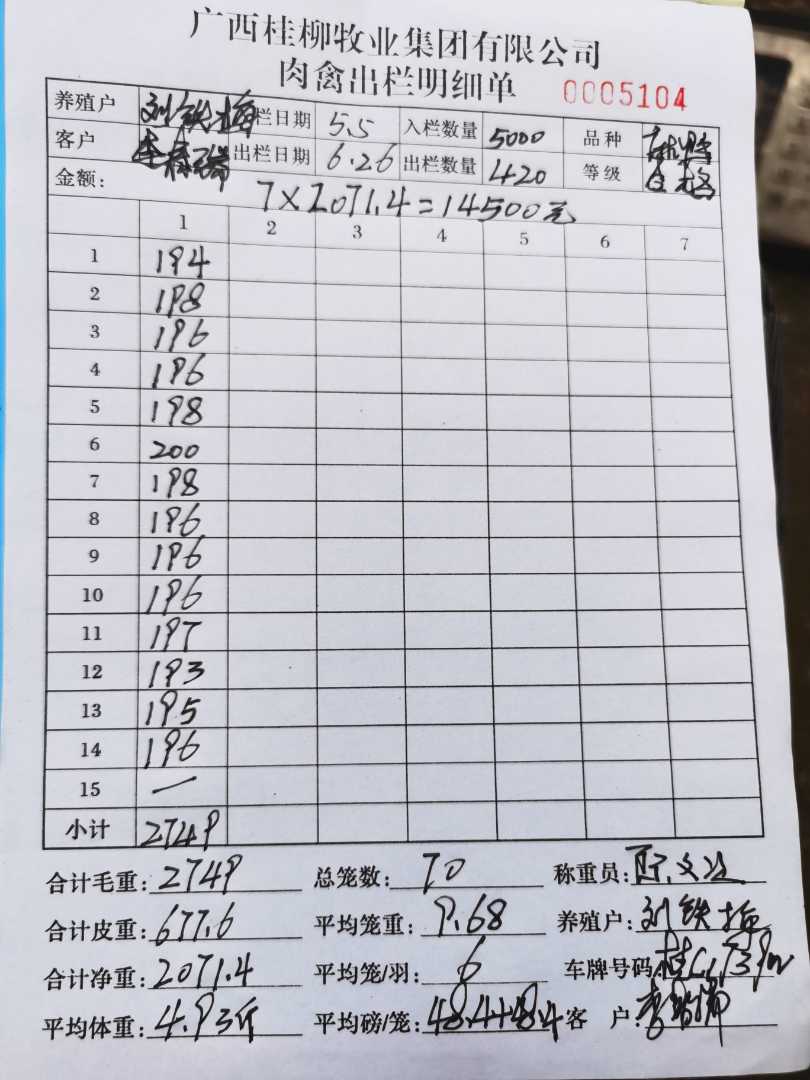 广西桂柳牧业集团有限公司
肉禽出栏明细单 0005104
养殖户 刘铁梅 栏日期 5.5 入栏数量 5000 品种
客户 出栏日期 6.26 出栏数量 420 等级 合格
金额: 7×2071.4=14500元
1 2 3 4 5 6 7
1 194
2 198
3 196
4 196
5 198
6 200
7 198
8 196
9 196
10 196
11 197
12 193
13 195
14 196
15 一
小计 2749
合计毛重: 2749 总笼数: 70 称重员:
合计皮重: 677.6 平均笼重: 9.68 养殖户: 刘铁梅
合计净重: 2071.4 平均笼/羽: 6 车牌号码
平均体重: 4.93斤 平均磅/笼: 48.4+48.4 客 户: